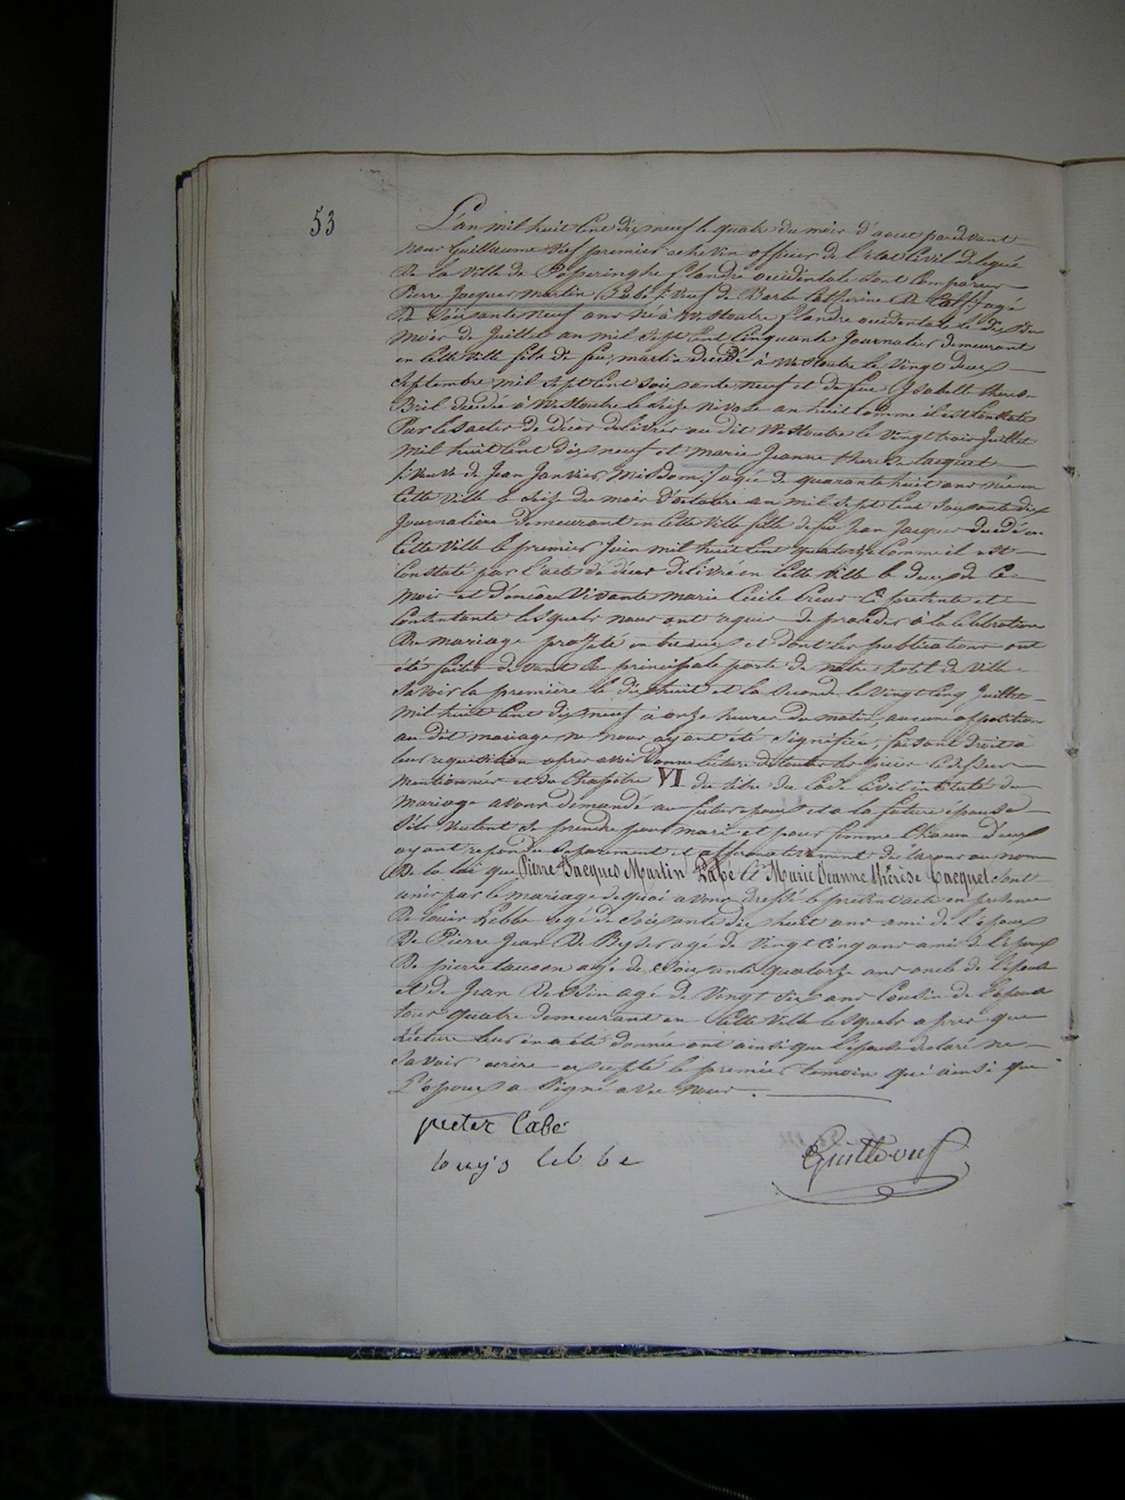 53
L'an mil huit cent dix neuf le quatre du mois d'aout pardevant
nous Guillaume Oeuf premier echevin officier de l'Etat Civil delegué
de la Ville de Poperinghe flandre occidentale sont comparus
Pierre Jacques Martin Labé /: veuf de Barbe Catherine :/ agé
de soixante neuf ans né à Westoutre flandre occidentale le dix du
mois de Juillet an mil sept cent cinquante Journalier demeurant
en cette ville fils de feu martin decedé à Westoutre le vingt deux
septembre mil sept cent soixante neuf et de feue Isabelle therese
Bril decedée à Westoutre le seize nivose an huit comme il est constaté
Par les actes de deces delivrés au dit Westoutre le vingt trois Juillet
mil huit cent dix neuf et marie Jeanne therese Cacquet
/: veuve de Jean Janvier :/ agée de quarante huit ans née en
cette ville le seize du mois d'octobre an mil sept cent soixante dix
Journaliere demeurant en cette ville fille de feu Jean Jacques decedé en
cette ville le premier Juin mil huit cent quatorze comme il est
constaté par l'acte de deces delivré en cette ville le deux de ce
mois et d'encore vivante marie Cecile ci presente et
consentante lesquels nous ont requis de proceder à la celebration
du mariage projeté entre eux et dont les publications ont
été faites devant la principale porte de notre hotel de ville
savoir la première le dix huit et la seconde le vingt cinq Juillet
mil huit cent dix neuf à onze heures du matin, aucune opposition
au dit mariage ne nous ayant été signifiée, faisant droit à
leur requisition apres avoir donné lecture de toutes les pieces ci dessus
mentionnées et du chapitre VI du titre du Code Civil intitulé du
mariage avons demandé au futur epoux et a la future épouse
s'ils veulent se prendre pour mari et pour femme chacun d'eux
ayant repondu separement et affirmativement declarons au nom
de la loi que Pierre Jacques Martin Labé et Marie Jeanne thérèse Cacquet sont
unis par le mariage de quoi avons dressé le present acte en presence
de Louis Lebbe agé de soixante dix huit ans ami de l'epoux
de Pierre Jean De Byser agé de vingt cinq ans ami de l'epoux
de pierre agé de soixante quatorze ans oncle de l'epouse
et de Jean agé de vingt six ans cousin de l'epouse
tous quatre demeurant en cette ville lesquels apres que
lecture leur en a été donnée ont ainsi que l'epouse declaré ne
savoir ecrire excepté le premier temoin qui ainsi que
L'époux a signé avec nous.
pieter labé
louys lebbe
Guill Oeuf